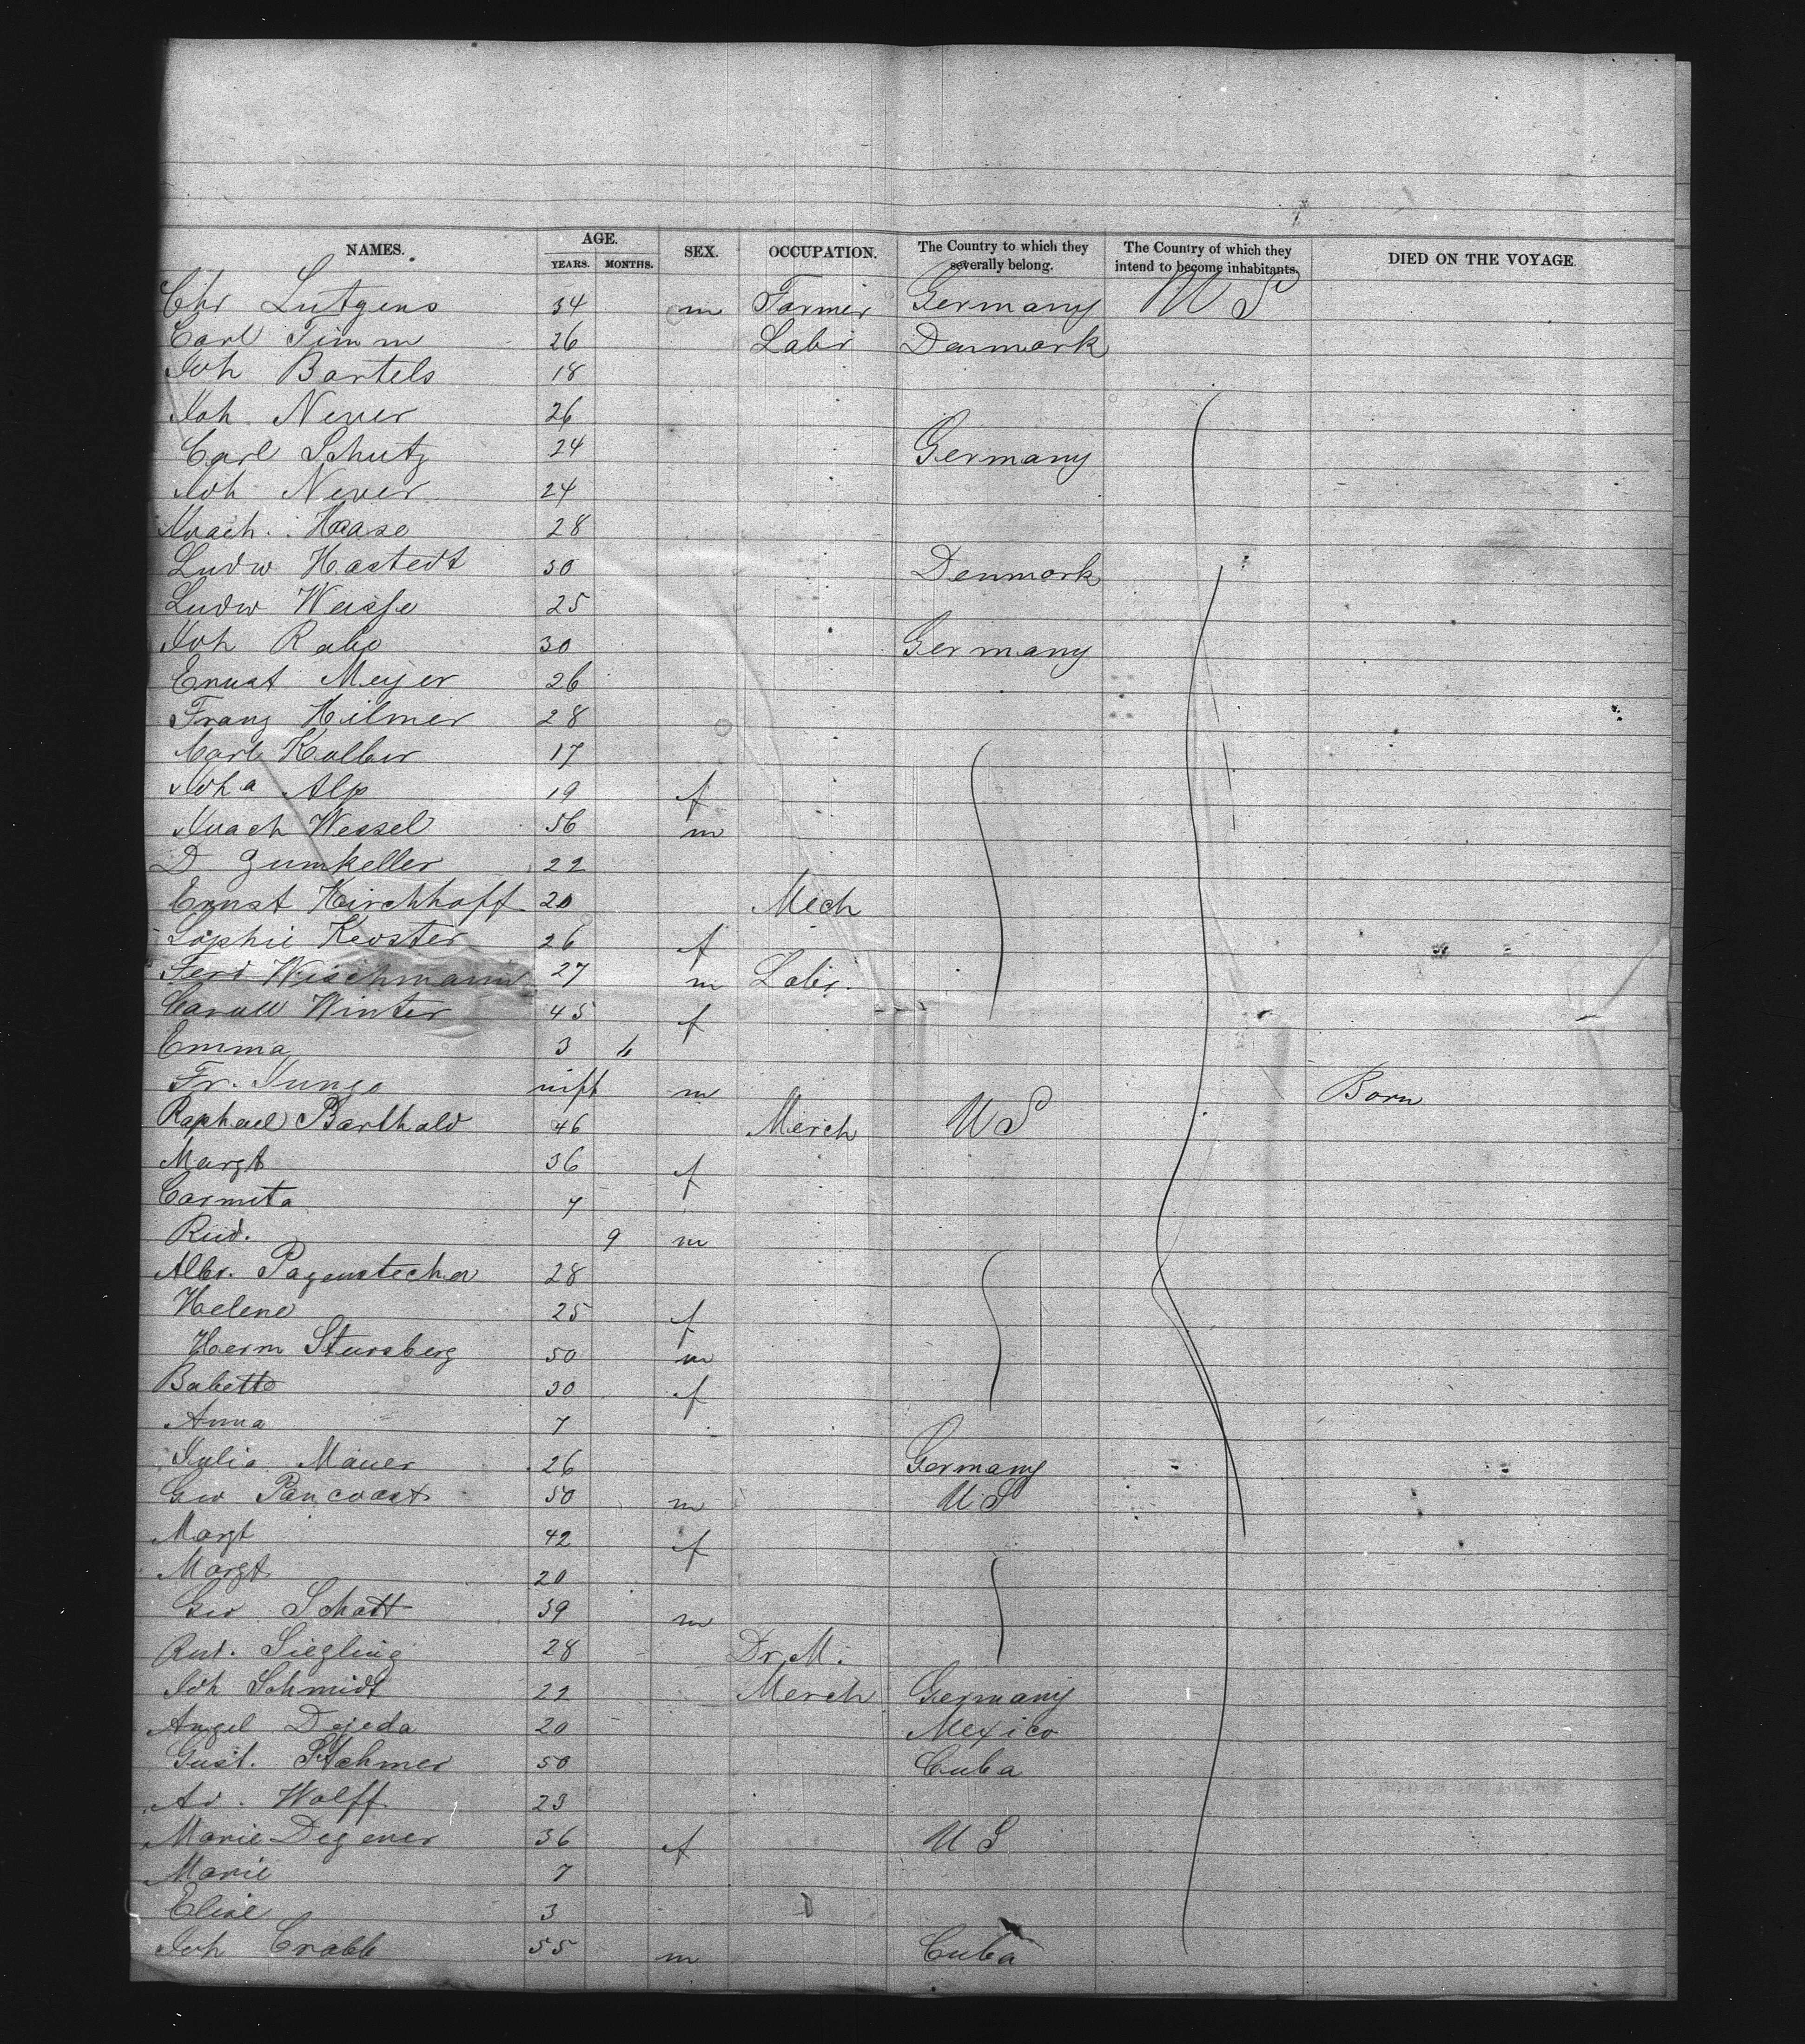 NAMES. AGE. SEX. OCCUPATION. The Country to which they severally belong. The Country of which they intend to become inhabitants. DIED ON THE VOYAGE.
YEARS. MONTHS.
Chr Lutgens 34 m Farmer Germany U S
Carl Timm 26 Labr Denmark
Joh Bartels 18
Joh. Never 26
Carl Schutz 24 Germany
Joh Never 24
Joach. Haase 28
Ludw Hastedt 30 Denmark
Ludw Weisse 25
Joh Rabe 30 Germany
Ernst Meyer 26
Franz Hilmer 28
Carl Kolber 17
Joha Alp 19 f
Joach Wessel 56 m
D Zumkeller 22
Ernst Kirchhoff 20 Mech
Sophie Keoster 26 f
Ferd Wischmann 27 m Labr.
Winter 45 f
Emma 3 6
Fr. Junge inft m Born
Raphael Barthold 46 Merch U S
Margt 36 f
Carmita 7
Rud. 9 m
Albr. Pagenstecher 28
Helene 25 f
Herm Stursberg 50 m
Babette 30 f
Anna 7
Julia Mauer 26 Germany
Geo Pancoast 50 m U S
Margt 42 f
Margt 20
Geo Schott 39 m
Rud. Siegling 28 Dr. M.
Joh Schmidt 22 Merch Germany
Angel Dejeda 20 Mexico
Gust. 50 Cuba
Ad. Wolff 23
Marie Degener 36 f U S
Marie 7
Elise 3
Joh Crabb 55 m Cuba